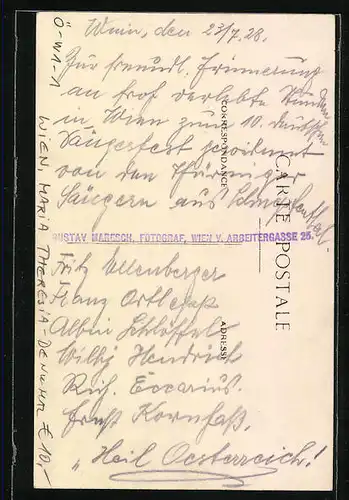 Wien, den 23/7. 28.
Zur freundl. Erinnerung
an froh verlebte Stunden
in Wien zum 10. deutschen
Sängerfest gewidmet
von den Thüringer
Sängern aus
GUSTAV MARESCH, FOTOGRAF, WIEN V. ARBEITERGASSE 25.
Fritz Ellenberger
Franz Ortlepp
Albin Schlöffel
Willy Hendrich
Rich. Eccarius.
Ernst Kornhaß.
„Heil Oesterreich!
CARTE POSTALE
CORRESPONDANCE
ADRESSE
Ö-W1-1
WIEN, MARIA THERESIA-DENKMAL €10,-